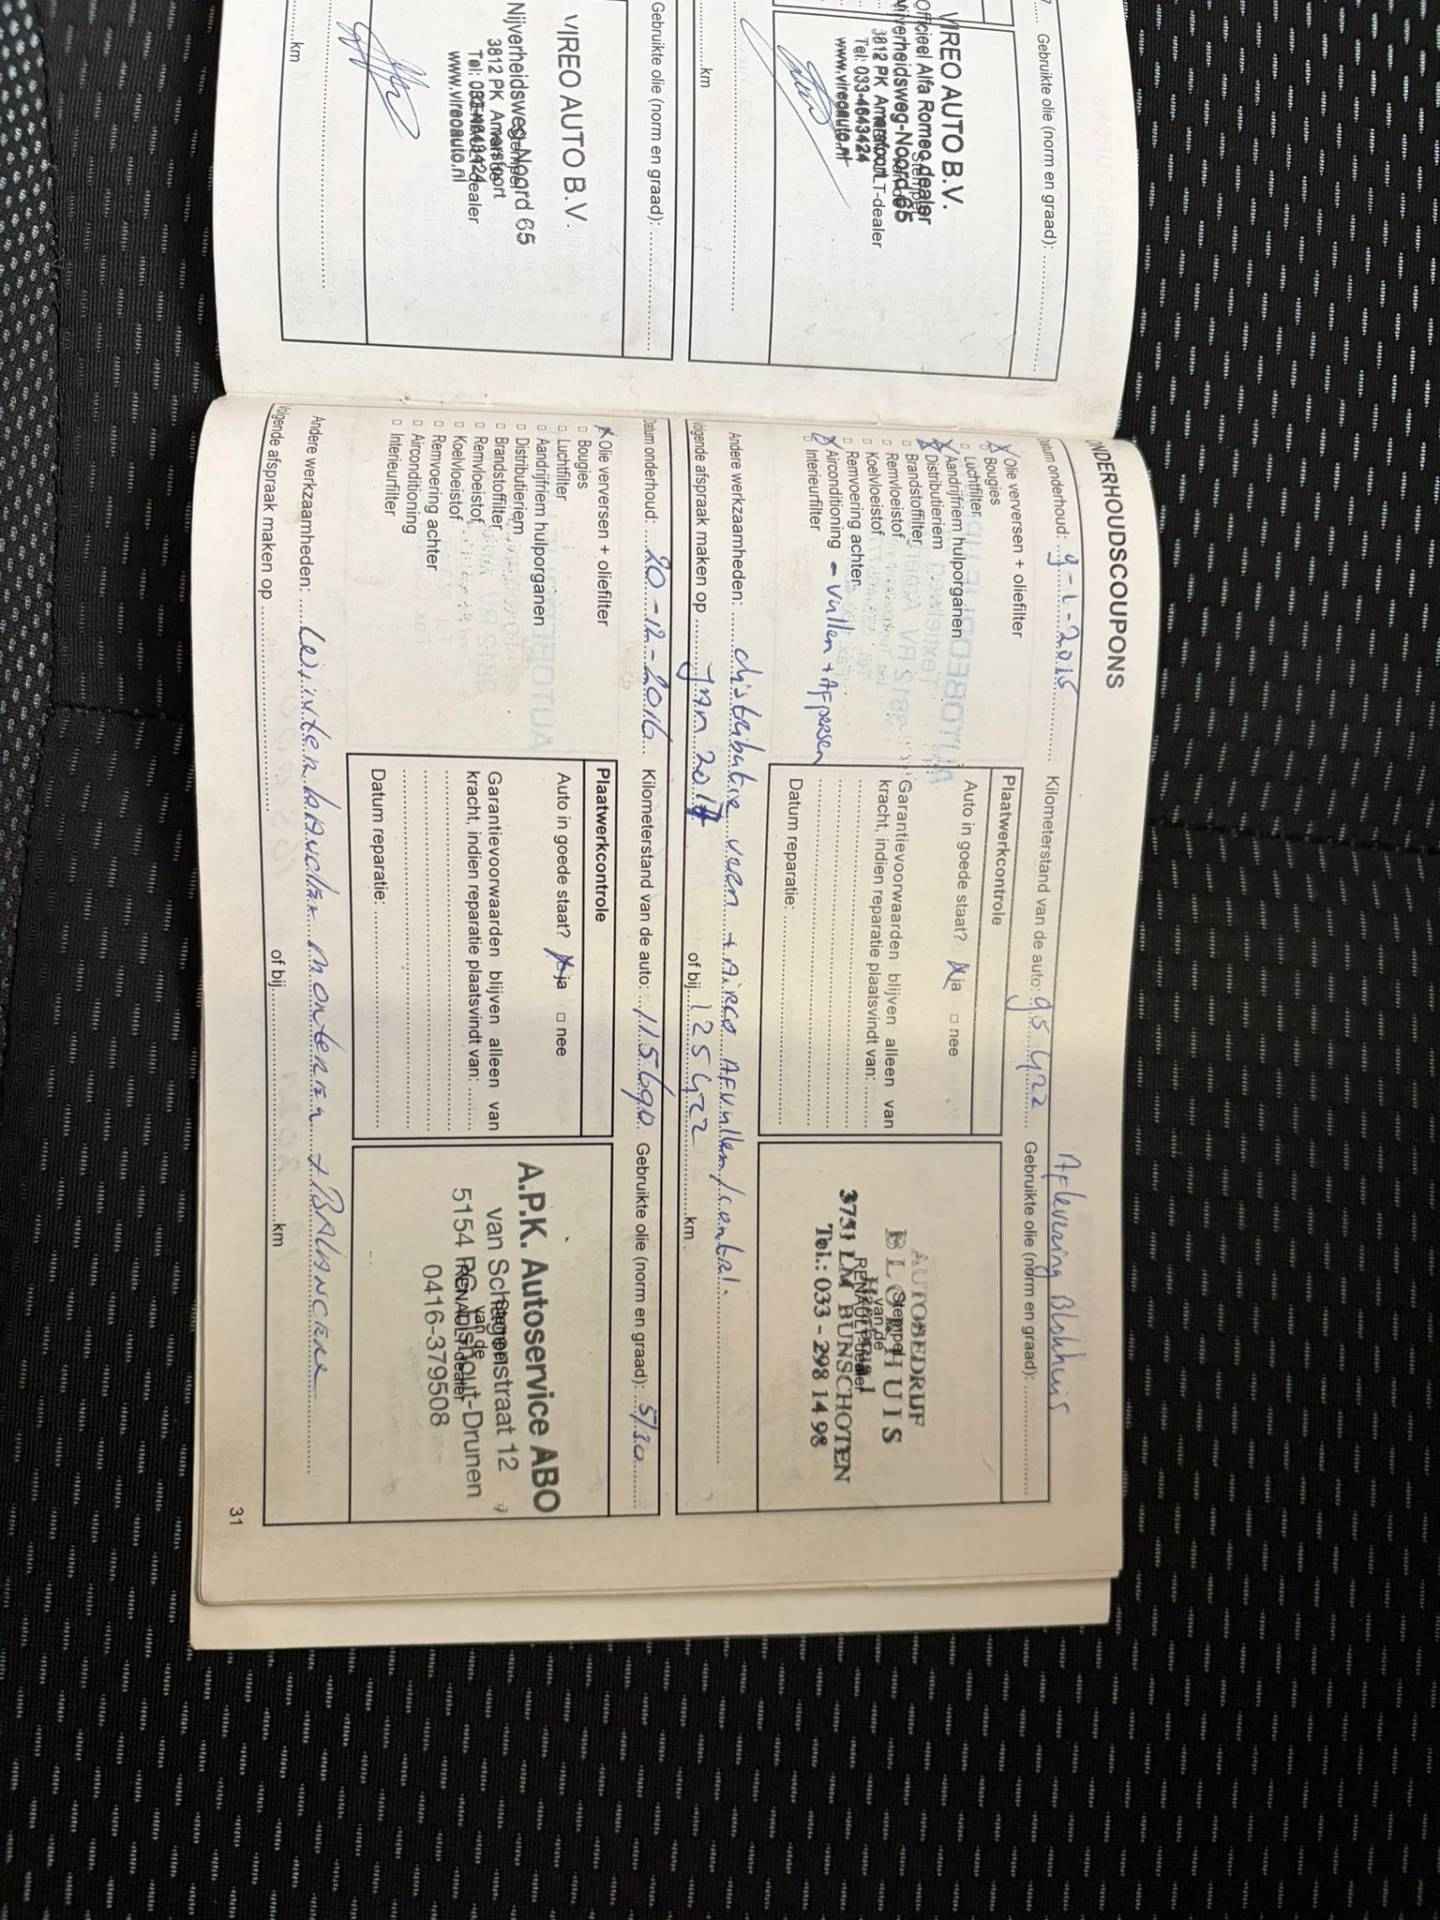 Gebruikte olie (norm en graad):
VIREO AUTO B.V.
Officieel Alfa Romeo dealer
Nijverheidsweg-Noord 65
3812 PK Amersfoort
Tel: 033-4643424
www.vireoauto.nl
km
Gebruikte olie (norm en graad):
VIREO AUTO B.V.
Nijverheidsweg-Noord 65
3812 PK Amersfoort
www.vireoauto.nl
km
ONDERHOUDSCOUPONS
Aflevering Blokhuis
Datum onderhoud: Kilometerstand van de auto: 95 422 Gebruikte olie (norm en graad):
Olie verversen + oliefilter
Bougies
Luchtfilter
Aandrijfriem hulporganen
Distributieriem
Brandstoffilter
Remvloeistof
Koelvloeistof
Remvoering achter
Airconditioning - vullen + Afpersen
Interieurfilter
Plaatwerkcontrole
Auto in goede staat? ja nee
Garantievoorwaarden blijven alleen van
kracht, indien reparatie plaatsvindt van:
Datum reparatie:
AUTOBEDRIJF
BLOKHUIS
Stempel
van de
RENAULT-dealer
3751 LM BUNSCHOTEN
Tel.: 033 - 298 14 98
Andere werkzaamheden: + Airco Afvullen/
Volgende afspraak maken op Jan 2017 of bij 125422 km
Datum onderhoud: 20-12-2016 Kilometerstand van de auto: 115690 Gebruikte olie (norm en graad): 5/30
Olie verversen + oliefilter
Bougies
Luchtfilter
Aandrijfriem hulporganen
Distributieriem
Brandstoffilter
Remvloeistof
Koelvloeistof
Remvoering achter
Airconditioning
Interieurfilter
Plaatwerkcontrole
Auto in goede staat? ja nee
Garantievoorwaarden blijven alleen van
kracht, indien reparatie plaatsvindt van:
Datum reparatie:
A.P.K. Autoservice ABO
Stempel
van de
RENAULT-dealer
0416-379508
Andere werkzaamheden: Winterbanden monteren + BALANCEREN
Volgende afspraak maken op of bij km
31